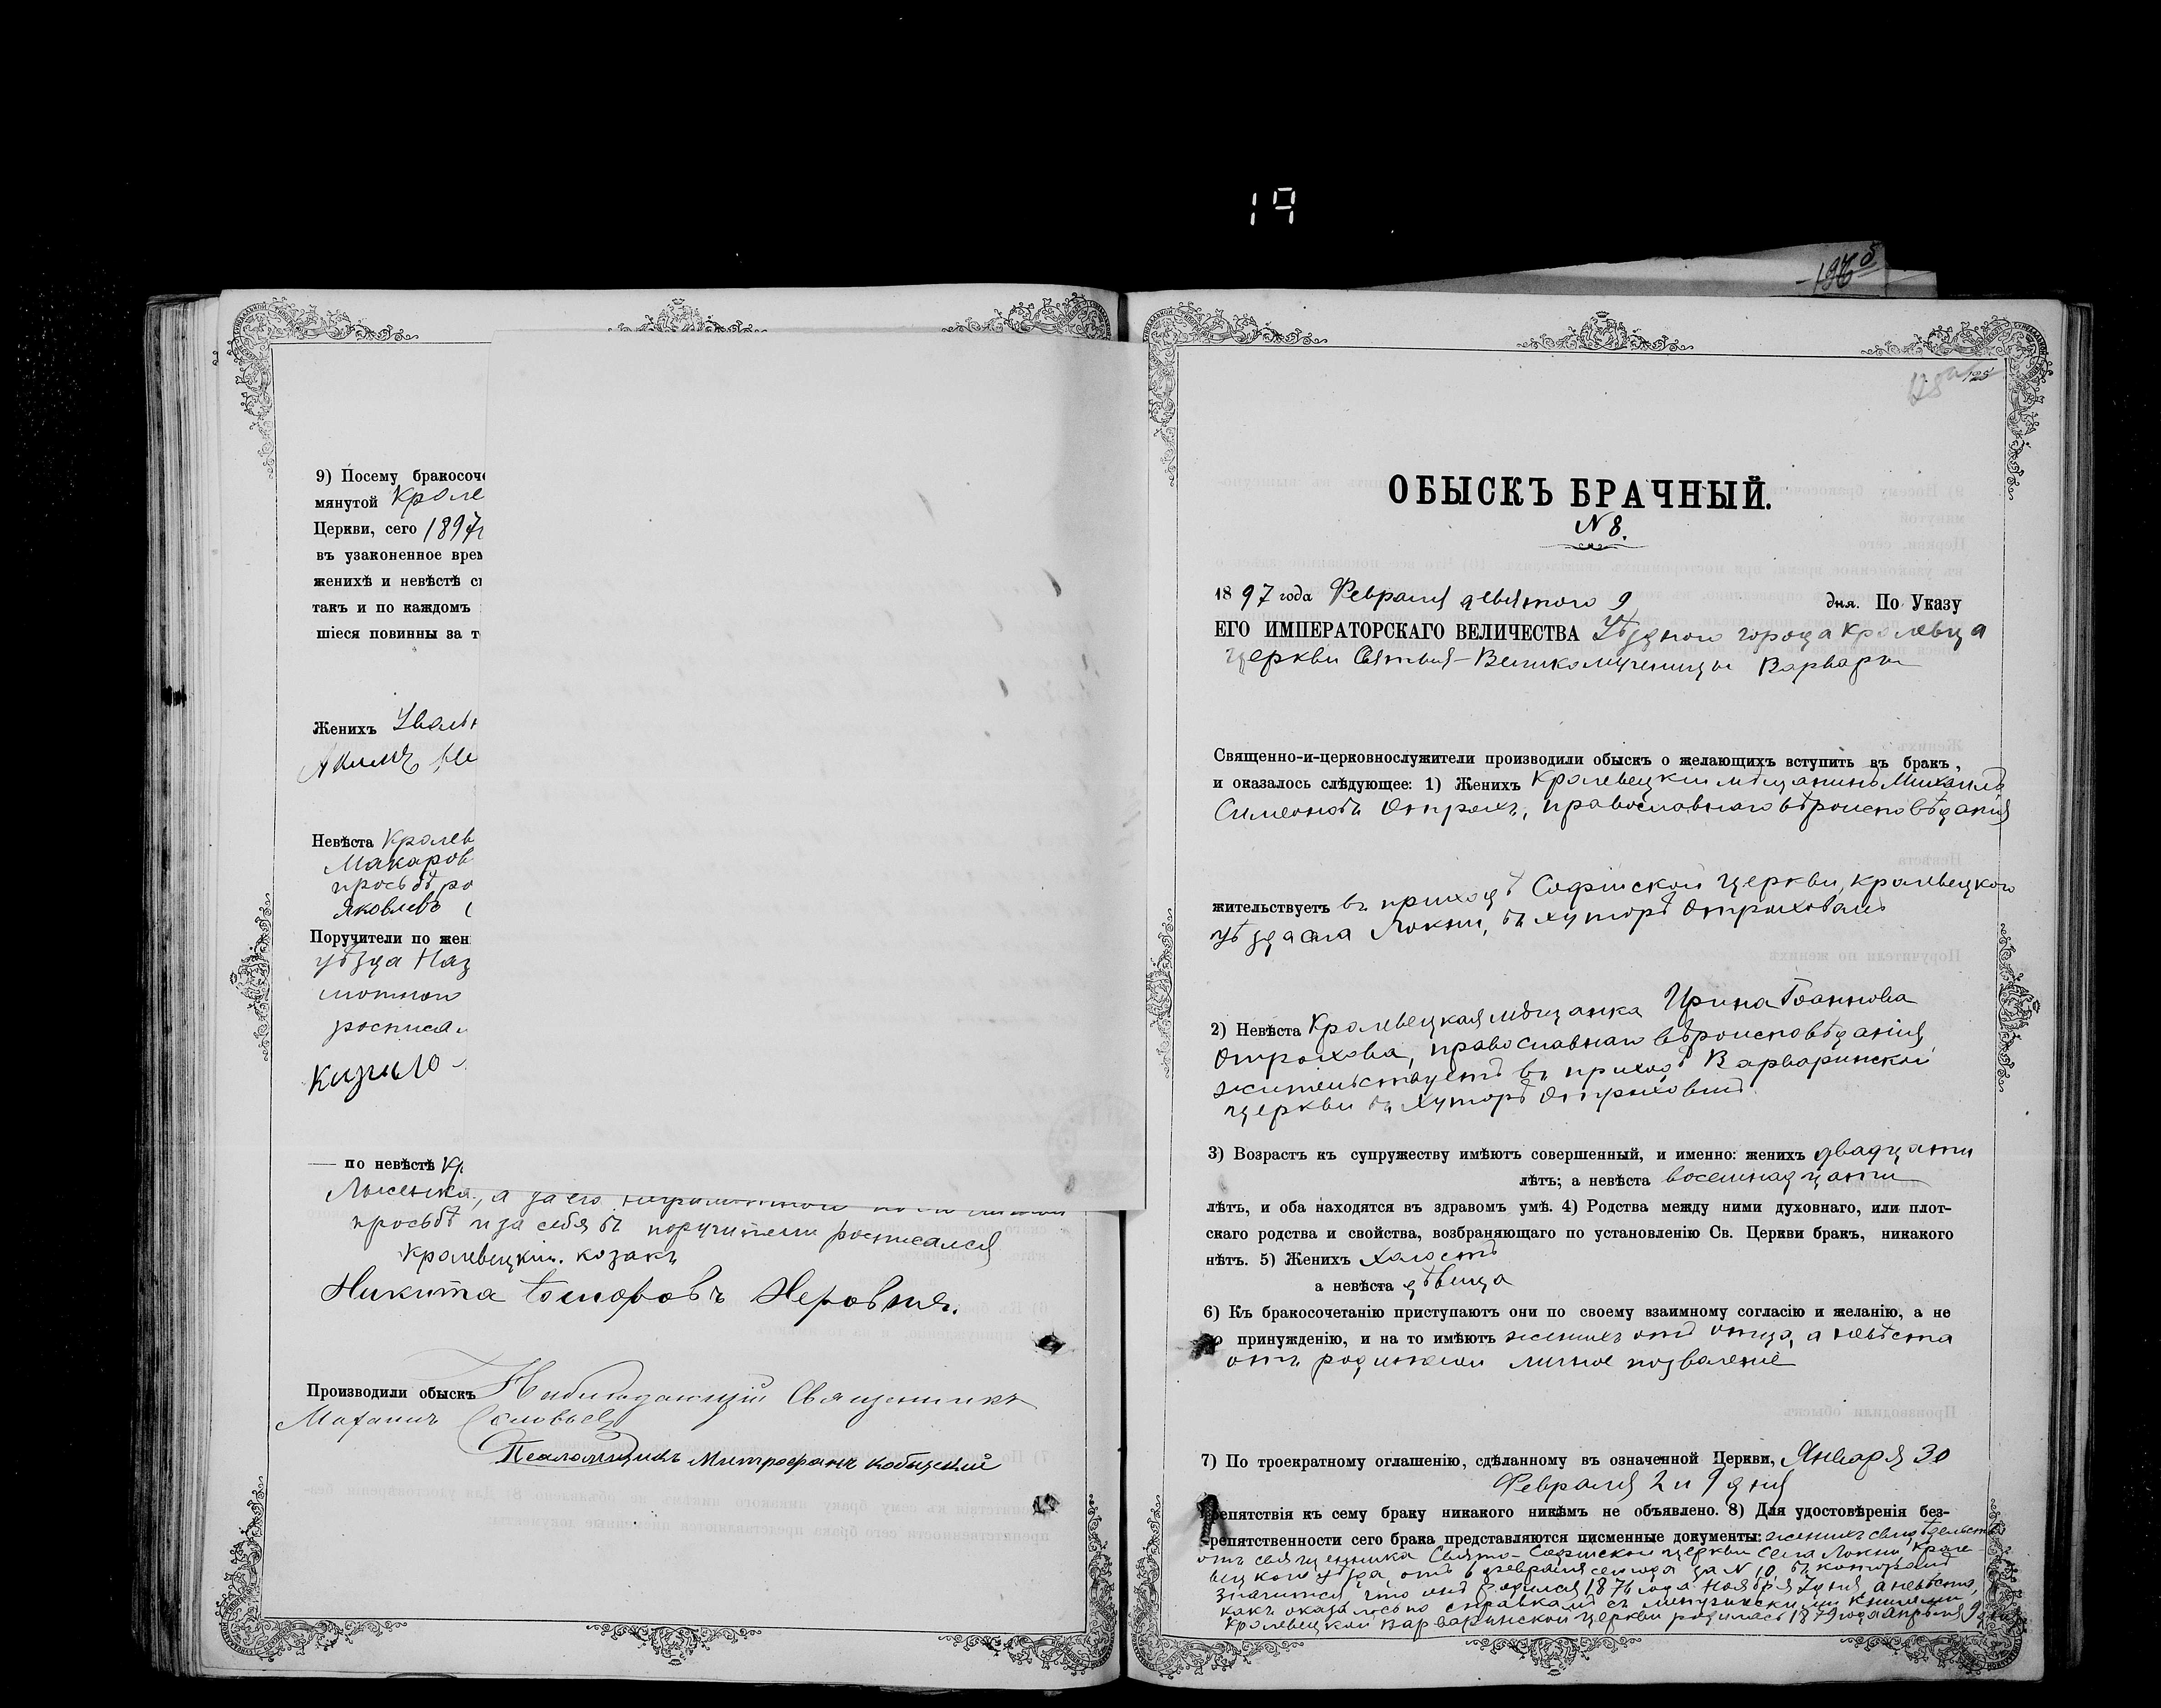 19
9) Посему бракосоче
мянутой Кроле
Церкви, сего 1897г
въ узаконенное врем
женихѣ и невѣстѣ с
такъ и по каждомъ
шіеся повинны за т
Женихъ
Акимъ
Невѣста Кролев
Макаров
просьбѣ ро
Яковлевъ
Поручители по жен
уѣзда Наз
мотного
росписал
— по невѣстѣ Кр
Лысенка, а за его неграмотного по его личной
просьбѣ и за себя въ поручители росписался
Кролевецкій козакъ
Никита Неровня.
Производили обыскъ Наблюдающій Священникъ
Соловьевъ
Псаломщикъ Митрофанъ Кобыцкій
125
ОБЫСКЪ БРАЧНЫЙ.
N 8.
1897 года Февраля девятого 9 дня. По Указу
ЕГО ИМПЕРАТОРСКАГО ВЕЛИЧЕСТВА Уѣздного города Кролевца
Церкви Святыя-Великомученицы Варвары
Священно-и-церковнослужители производили обыскъ о желающихъ вступить въ бракъ,
и оказалось слѣдующее: 1) Женихъ Кролевецкій мѣщанинъ Михаилъ
Симеоновъ Отрохъ, православнаго вѣроисповѣданія
жительствуетъ въ приходѣ Софійской церкви, Кролевецкого
уѣзда села Локни, въ хуторѣ Отроховомъ
2) Невѣста Кролевецкая мѣщанка Ирина Іоаннова
Отрохова, православнаго вѣроисповѣданія,
жительствуетъ въ приходѣ Варваринской
церкви въ Хуторѣ
3) Возрастъ къ супружеству имѣютъ совершенный, и именно: женихъ двадцати
лѣтъ; а невѣста восемнадцати
лѣтъ, и оба находятся въ здравомъ умѣ. 4) Родства между ними духовнаго, или плот-
скаго родства и свойства, возбраняющаго по установленію Св. Церкви бракъ, никакого
нѣтъ. 5) Женихъ холостъ
а невѣста дѣвица
6) Къ бракосочетанію приступаютъ они по своему взаимному согласію и желанію, а не
по принужденію, и на то имѣютъ женихъ отъ отца, а невѣста
отъ родителей личное позволеніе
7) По троекратному оглашенію, сдѣланному въ означенной Церкви, Января 30
Февраля 2 и 9 дня
препятствія къ сему браку никакого никѣмъ не объявлено. 8) Для удостовѣренія без-
препятственности сего брака представляются писменные документы: женихъ свидѣтельство
отъ священника Свято-Софійской церкви села Локни, Кроле-
вецкого уѣзда, отъ 6 февраля сего года за N 10, въ которомъ
значится что онъ родился 1876 года Ноября дня, а невѣста,
какъ оказалось по справкамъ съ метрическими книгами
Кролевецкой Варваринской церкви родилась 1879 года апрѣля 9 дня